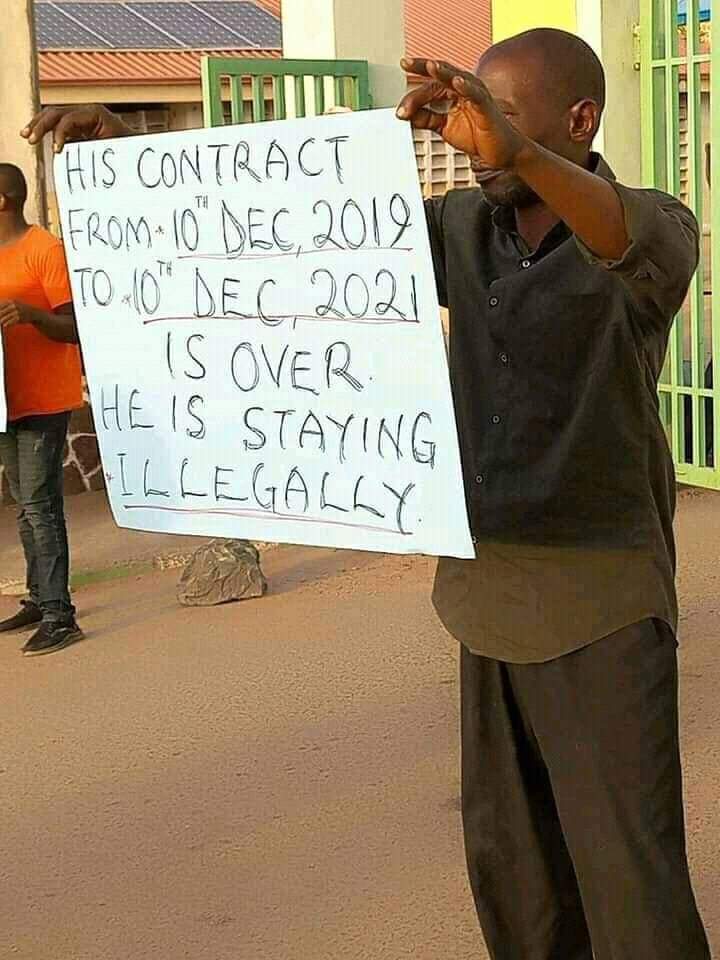 HIS CONTRACT
FROM 10TH DEC, 2019
TO 10TH DEC, 2021
IS OVER.
HE IS STAYING
ILLEGALLY.